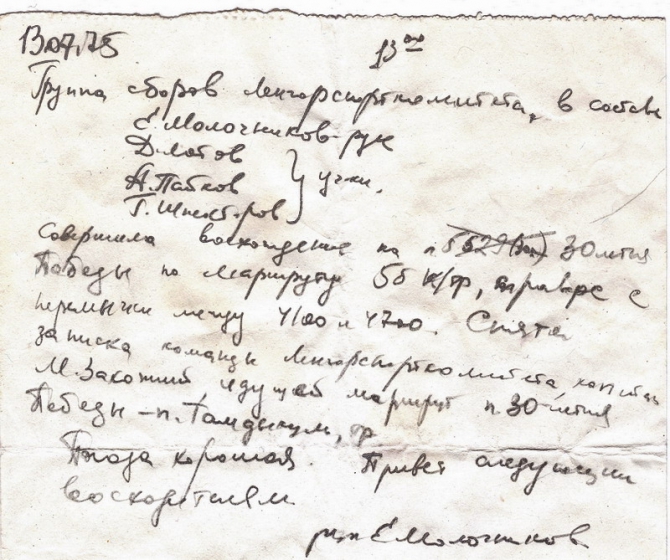 13.07.75 13⁰⁰
Группа сборов Ленгорспорткомитета, в составе
Е.Молочников-рук
Д.Лотов
А.Папков } уч-ки.
Г.Шпект-ров
совершила восхождение на п. 30летия
Победы по маршруту 5б к/тр, траверс с
перемычки между 4100 и 4700. Снята
записка команды Ленгорспорткомитета, капитан
М. идущей маршрут п.30-летия
Победы -п.Тамдыкул,
Погода хорошая. Привет следующим
восходителям.
рук Е.Молочников